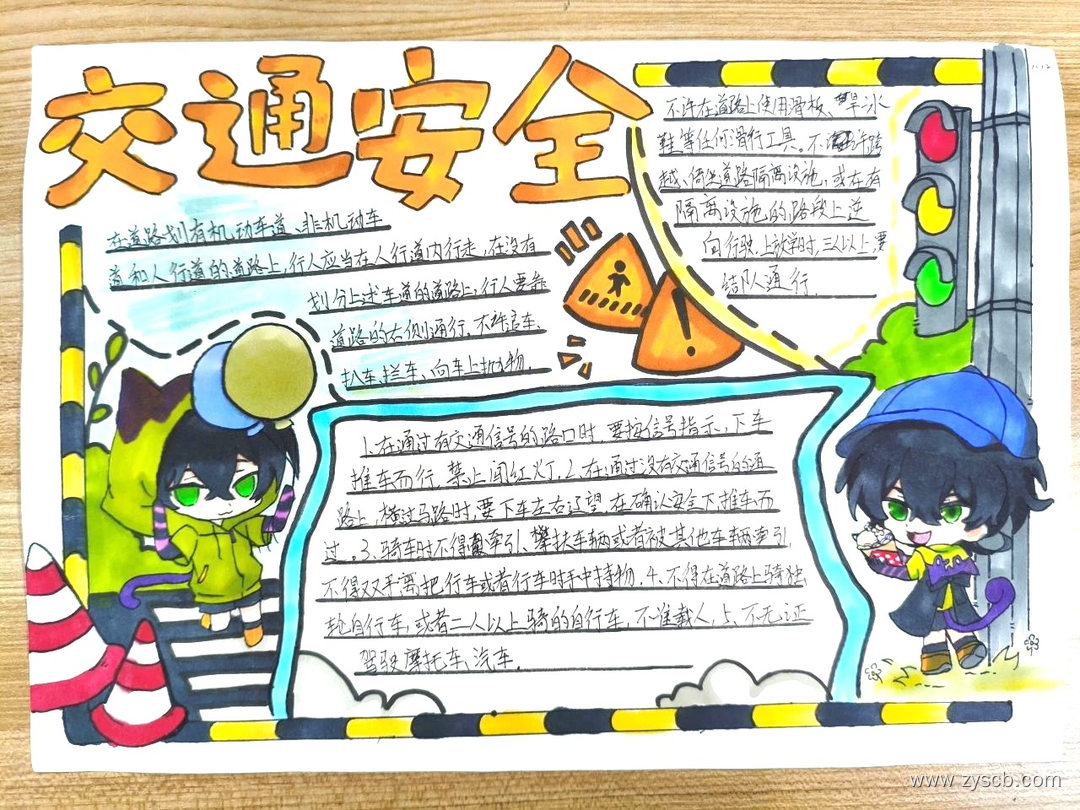 交通安全
在道路划有机动车道、非机动车
道和人行道的道路上,行人应当在人行道内行走,在没有
划分上述车道的道路上,行人要靠
道路的右侧通行,不准追车、
扒车、拦车、向车上扔物.
不许在道路上使用滑板、旱冰
鞋等任何滑行工具,不许跨
越、倚坐道路隔离设施,或在有
隔离设施的路段上逆
向行驶,上放学时,三人以上,要
结队通行.
1.在通过有交通信号的路口时,要按信号指示,下车
推车而行,禁止闯红灯.2.在通过没有交通信号的道
路上,横过马路时,要下车左右辽望,在确认安全下推车而
过.3.骑车时不得牵引、攀扶车辆或者被其他车辆牵引,
不得双手离把行车或者行车时手中持物.4.不得在道路上骑独
轮自行车,或者二人以上骑的自行车,不准载人,5、不无证
驾驶摩托车、汽车.
www.zyscb.com